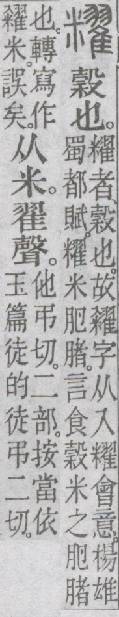 䊮
穀也。
䊮者、穀也。故糴字从入䊮會意。楊雄
蜀都賦。䊮米肥䐗。言食穀米之肥䐗
也。轉寫作
糴米。誤矣。
从米。翟聲。
他弔切。二部。按當依
玉篇徒的徒弔二切。